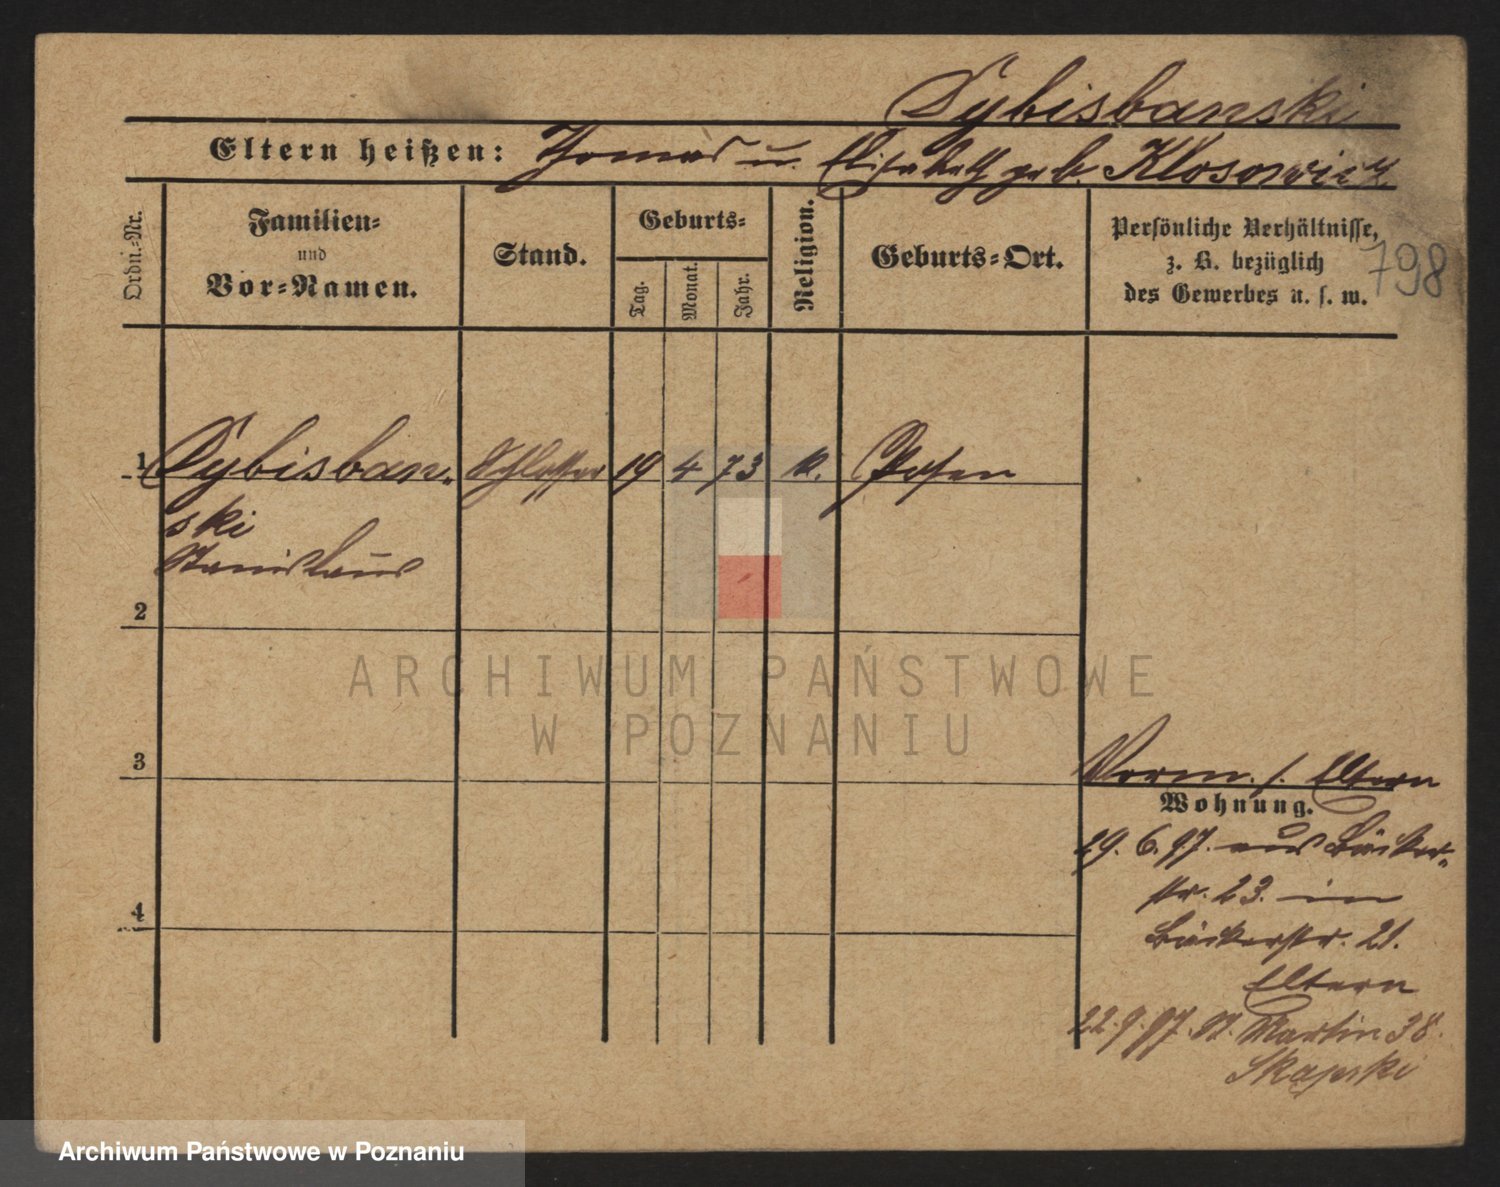 Dybisbanski
Eltern heißen: Thomas u. Elisabeth geb. Klosowicz
Ordn.-Nr.
Familien-
und
Vor-Namen.
Stand.
Geburts-
Tag.
Monat.
Jahr.
Religion.
Geburts-Ort.
Persönliche Verhältnisse,
z. B. bezüglich
des Gewerbes u. s. w.
798
1 Dybisban- Schlosser 19 4 73 k. Posen
ski
Stanislaus
2
3
4
Vorm. s. Eltern
Wohnung.
29. 6. 97. aus Bäcker-
str. 23. in
Bäckerstr. 21.
Eltern
22. 9. 97. St. Martin 38.
ARCHIWUM PAŃSTWOWE
W POZNANIU
Archiwum Państwowe w Poznaniu